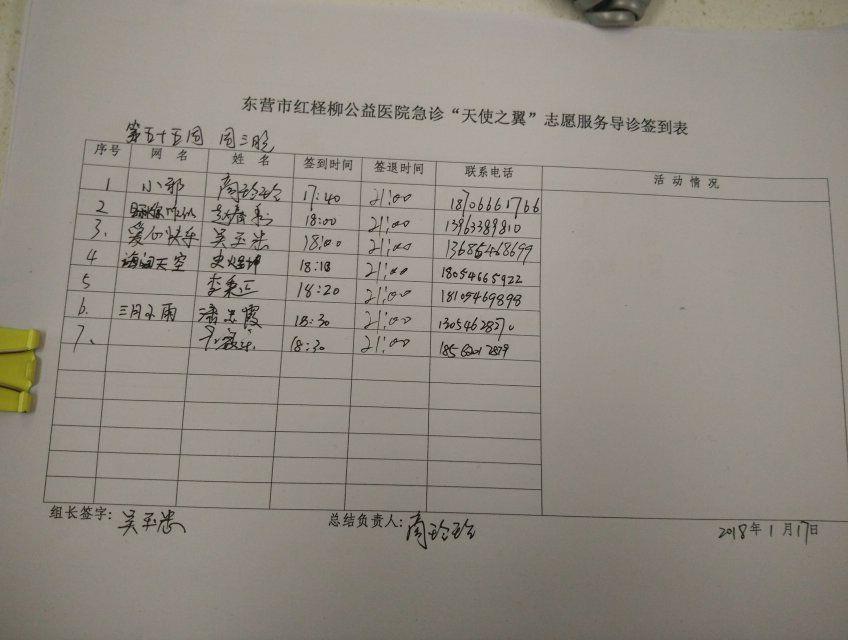 东营市红柽柳公益医院急诊“天使之翼”志愿服务导诊签到表
第五十五周 周三晚
序号 网 名 姓 名 签到时间 签退时间 联系电话 活 动 情 况
1 小郭 周玲玲 17:40 21:00 18706661766
2 18:00 21:00 13963389810
3. 爱心快乐 吴玉忠 18:00 21:00 13685468699
4 海阔天空 18:18 21:00 18054665922
5 李秉正 18:20 21:00 18105469898
6. 三月小雨 潘忠霞 18:30 21:00 13054628270
7. 18:30 21:00
组长签字: 吴玉忠 总结负责人: 周玲玲 2018年1月17日